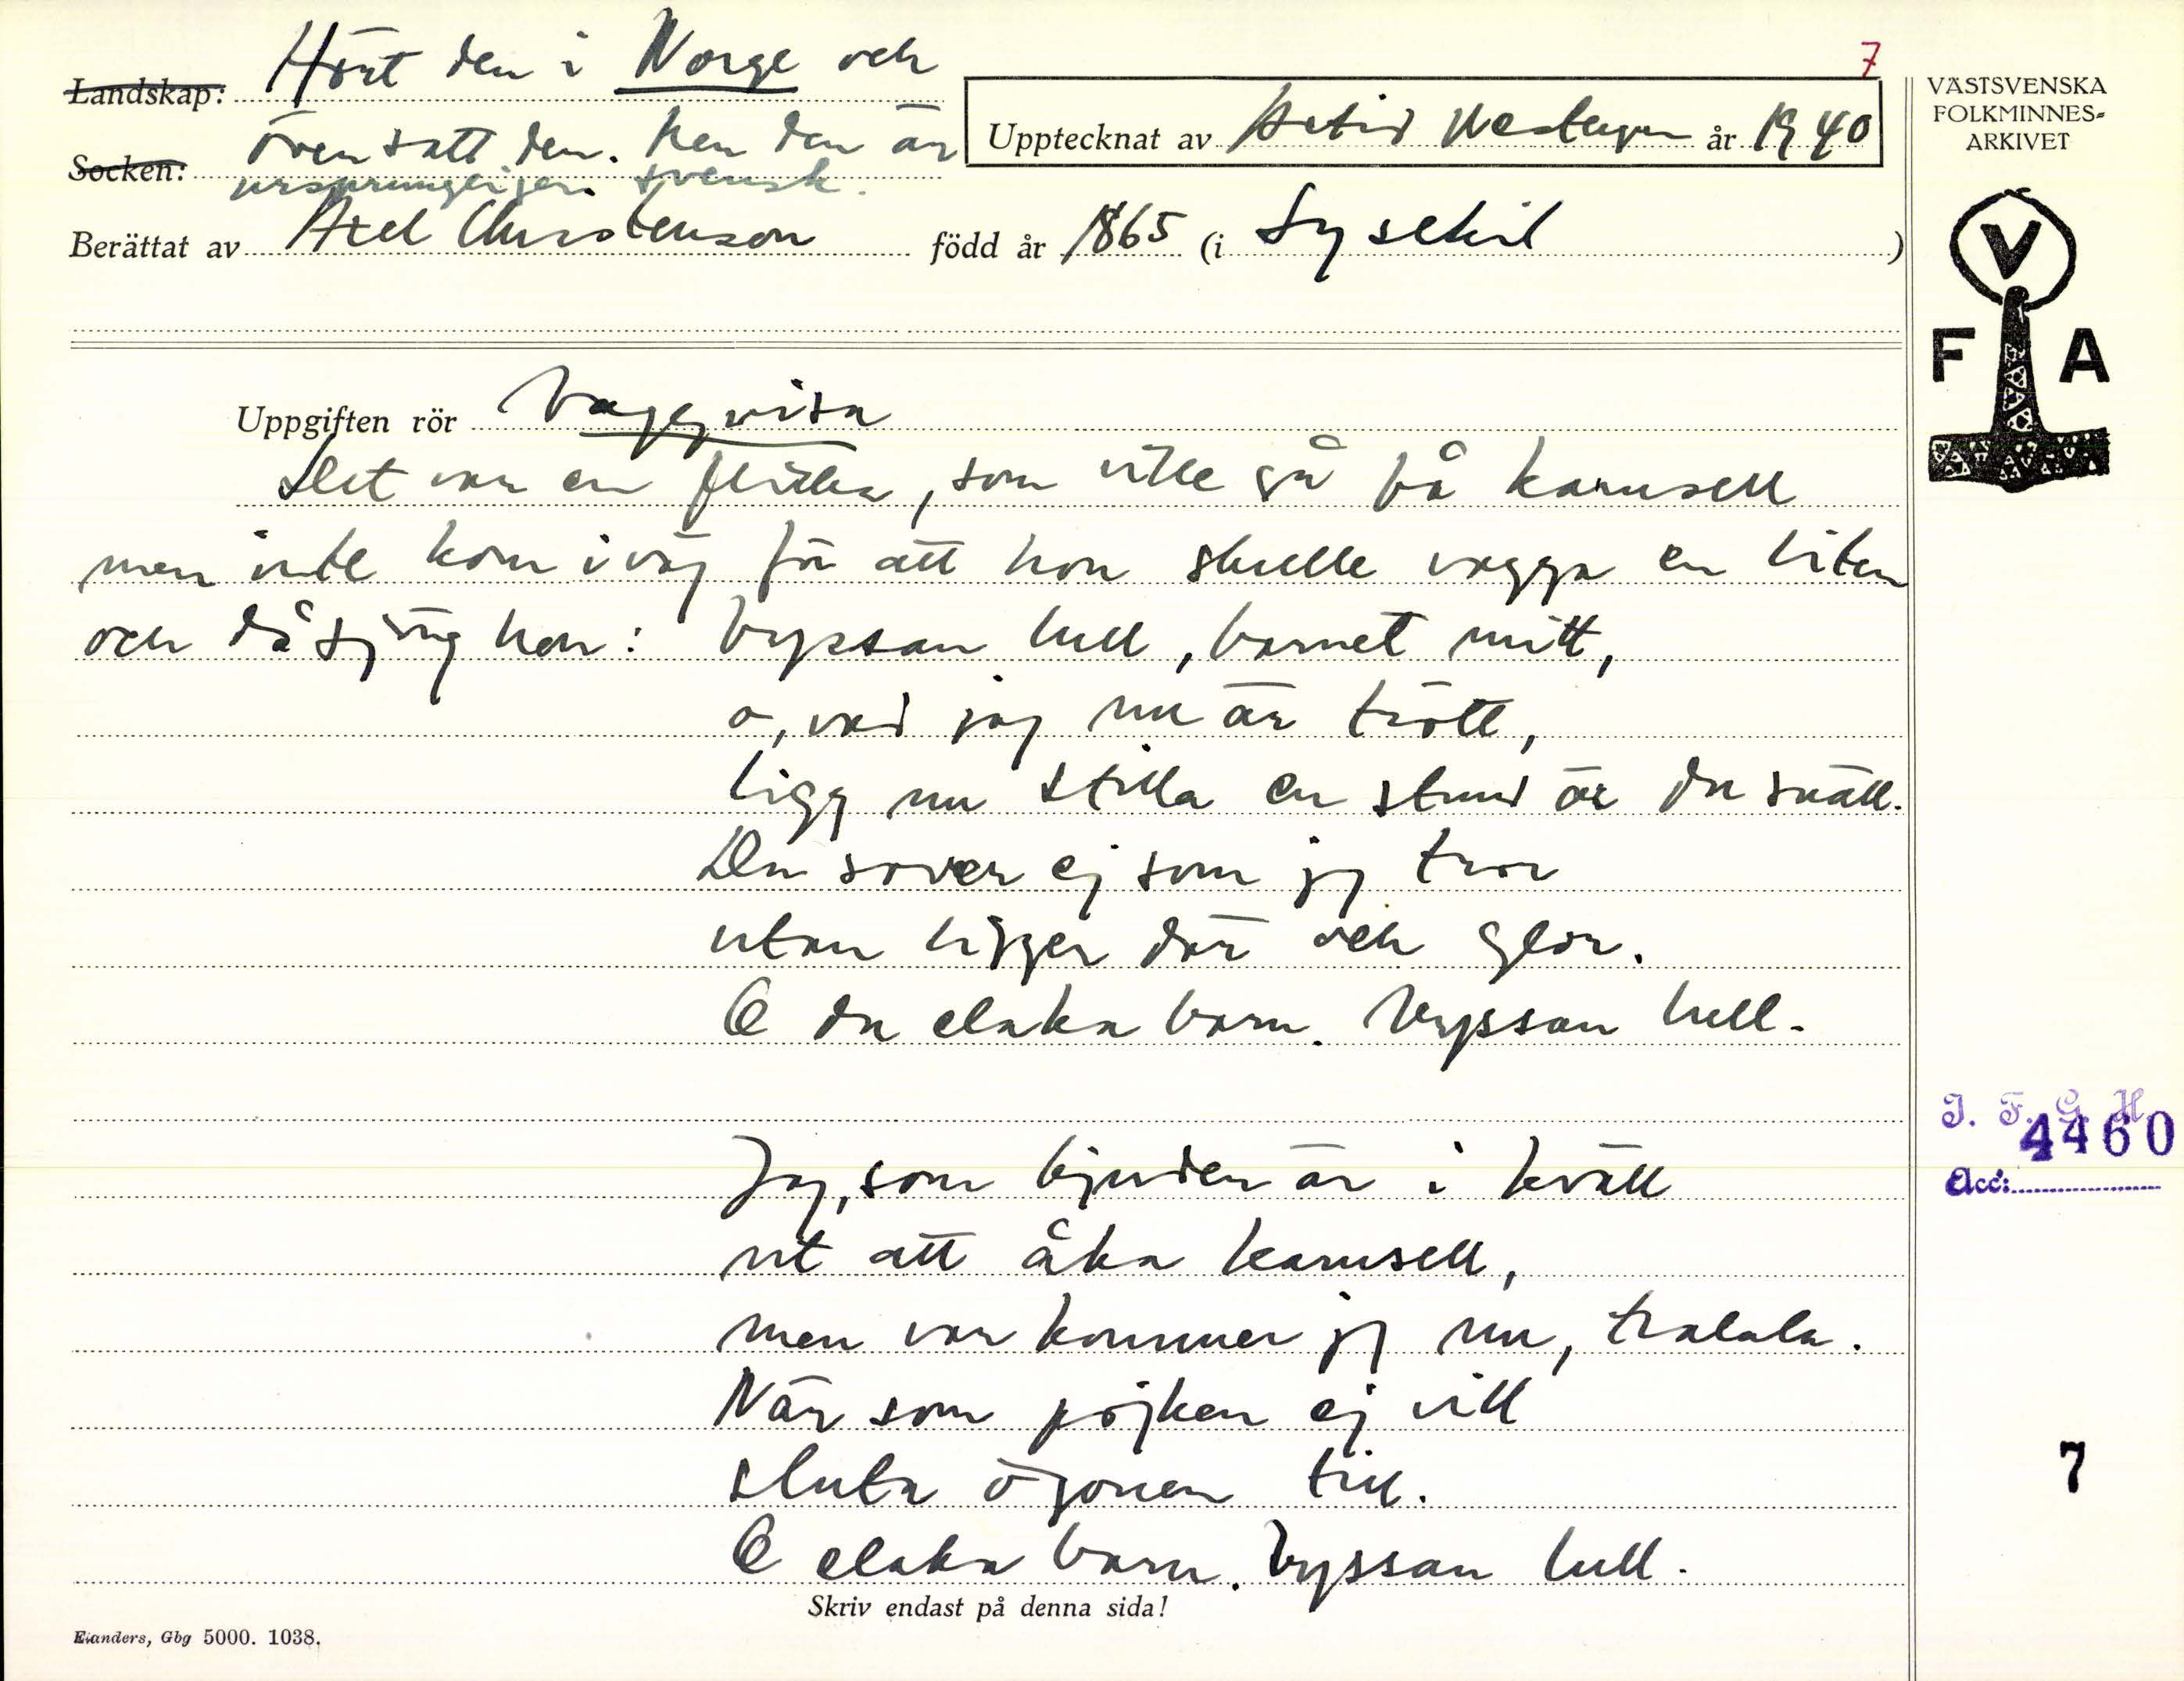 7
~~Landskap:~~ Hört den i Norge och
~~Socken:~~ översatt den. Men den är
ursprungligen svensk.
Upptecknat av Astrid år 1940
Berättat av Axel Christenson född år 1865 (i Lysekil)
Uppgiften rör Vaggvisa
Det var en flicka, som ville gå på karusell
men inte kom iväg för att hon skulle vagga en liten
och då sjöng hon: Vyssan lull, barnet mitt,
o, vad jag nu är trött,
ligg nu stilla en stund är du snäll.
Du sover ej som jag tror
utan ligger där och glor.
O du elaka barn. Vyssan lull.
Jag, som bjuden är i kväll
ut att åka karusell,
men var kommer jag nu, tralala.
När som pojken ej vill
sluta ögonen till.
O elaka barn. Vyssan lull.
Skriv endast på denna sida!
Elanders, Gbg 5000. 1038.
VÄSTSVENSKA
FOLKMINNES-
ARKIVET
V
F A
I. F. G. H.
4460
Acc:
7